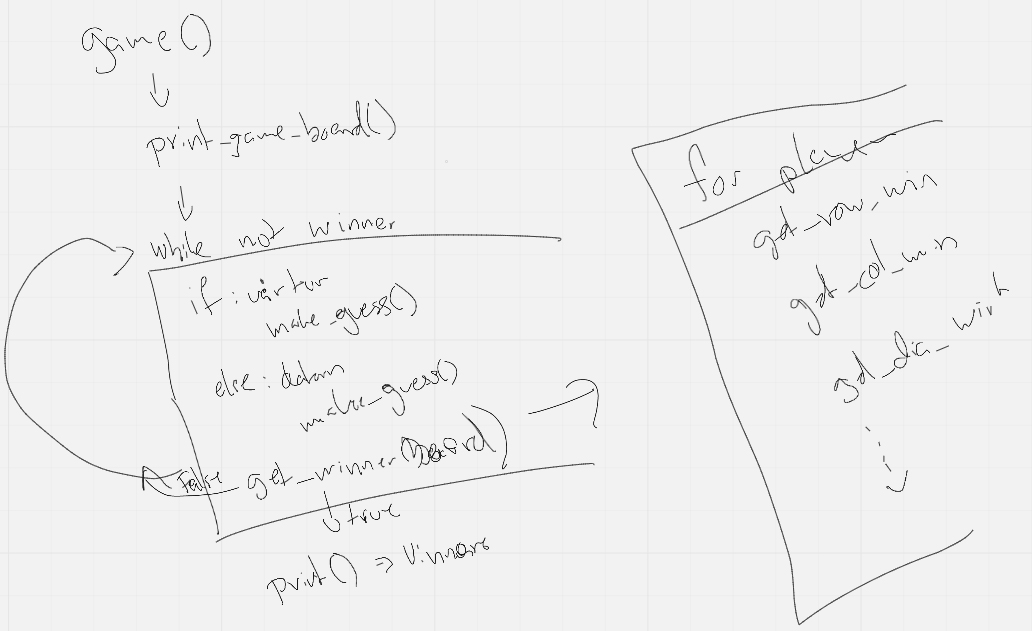 game()
print_game_board()
while not winner
if: vår tur
make_guess()
else: datorn
make_guess()
False get_winner(board)
true
print() => Vinnare
for player
get_row_win
get_col_win
get_dia_win